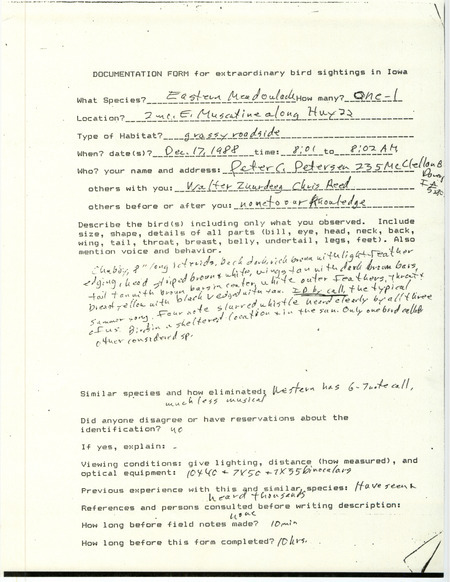 DOCUMENTATION FORM for extraordinary bird sightings in Iowa
What Species? Eastern Meadowlark How many? One-1
Location? 2 mi. E. Muscatine along Hwy 22
Type of Habitat? grassy roadside
When? date(s)? Dec. 17, 1988 time: 8:01 to 8:02 AM
Who? your name and address: Peter C. Petersen 235 McClellan B
others with you: Walter Zuurdeeg Chris Reed
others before or after you: none to our knowledge
Describe the bird(s) including only what you observed. Include
size, shape, details of all parts (bill, eye, head, neck, back,
wing, tail, throat, breast, belly, undertail, legs, feet). Also
mention voice and behavior.
Chubby, 8" long icterids, back dark, rich brown with light feather
edging, head striped brown & white, wings tan with dark brown bars,
tail tan with brown bars in center, white outer feathers, throat &
breast yellow with black v edged with tan. ID by call, the typical
summer song. Four note slurred whistle heard clearly by all three
of us. Bird in a sheltered location in the sun. Only one bird called
other considered sp.
Similar species and how eliminated: Western has 6-7 note call,
much less musical
Did anyone disagree or have reservations about the
identification? no
If yes, explain: -
Viewing conditions: give lighting, distance (how measured), and
optical equipment: 10x40 + 7x50 + 7x35 binoculars
Previous experience with this and similar species: Have seen &
heard thousands
References and persons consulted before writing description:
none
How long before field notes made? 10 min
How long before this form completed? 10 hrs.